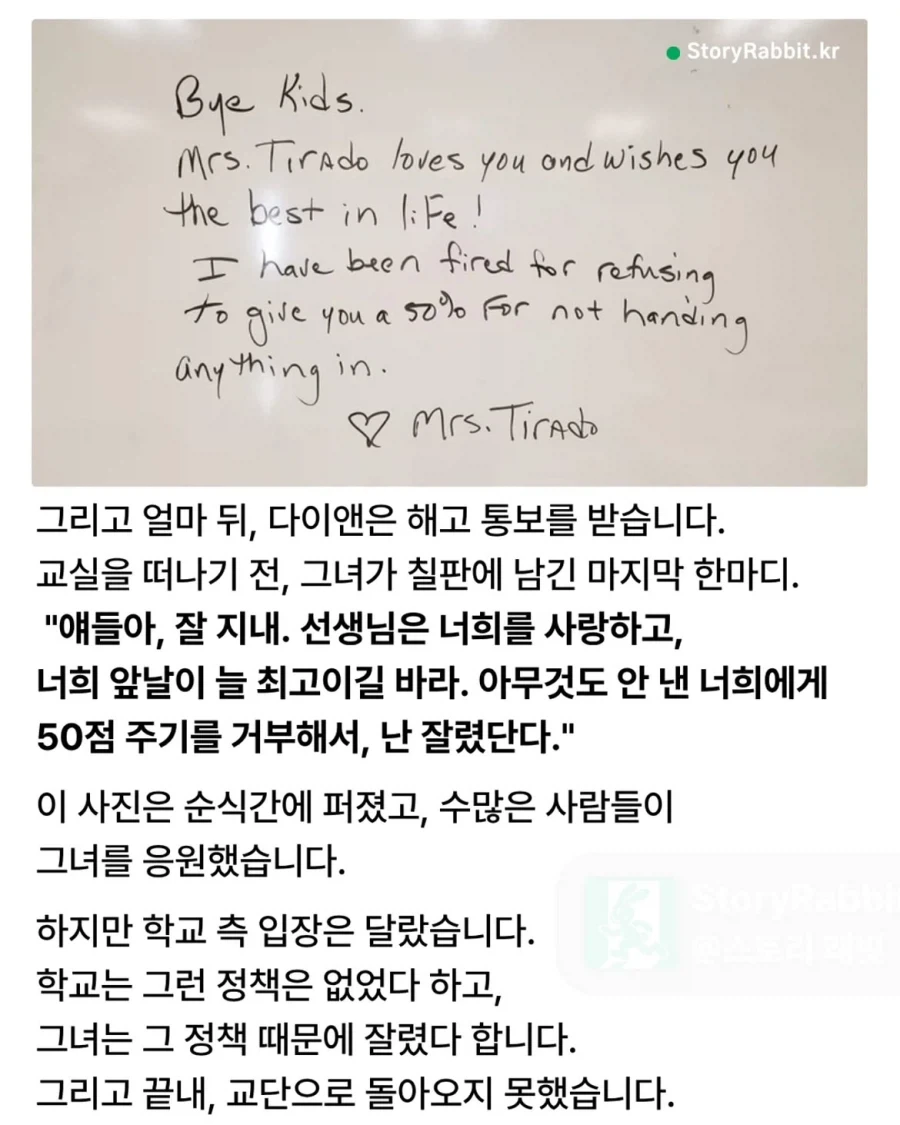 StoryRabbit.kr
Bye Kids.
Mrs. Tirado loves you and wishes you
the best in life!
I have been fired for refusing
to give you a 50% for not handing
anything in.
♡ Mrs. Tirado
그리고 얼마 뒤, 다이앤은 해고 통보를 받습니다.
교실을 떠나기 전, 그녀가 칠판에 남긴 마지막 한마디.
"얘들아, 잘 지내. 선생님은 너희를 사랑하고,
너희 앞날이 늘 최고이길 바라. 아무것도 안 낸 너희에게
50점 주기를 거부해서, 난 잘렸단다."
이 사진은 순식간에 퍼졌고, 수많은 사람들이
그녀를 응원했습니다.
하지만 학교 측 입장은 달랐습니다.
StoryRabbit
@스토리 래빗
학교는 그런 정책은 없었다 하고,
그녀는 그 정책 때문에 잘렸다 합니다.
그리고 끝내, 교단으로 돌아오지 못했습니다.